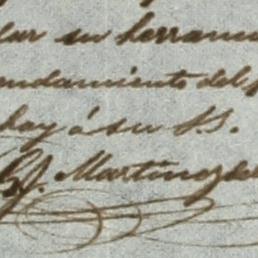 lar su herram
endamiento del
hay á su S.
G. Martinez del